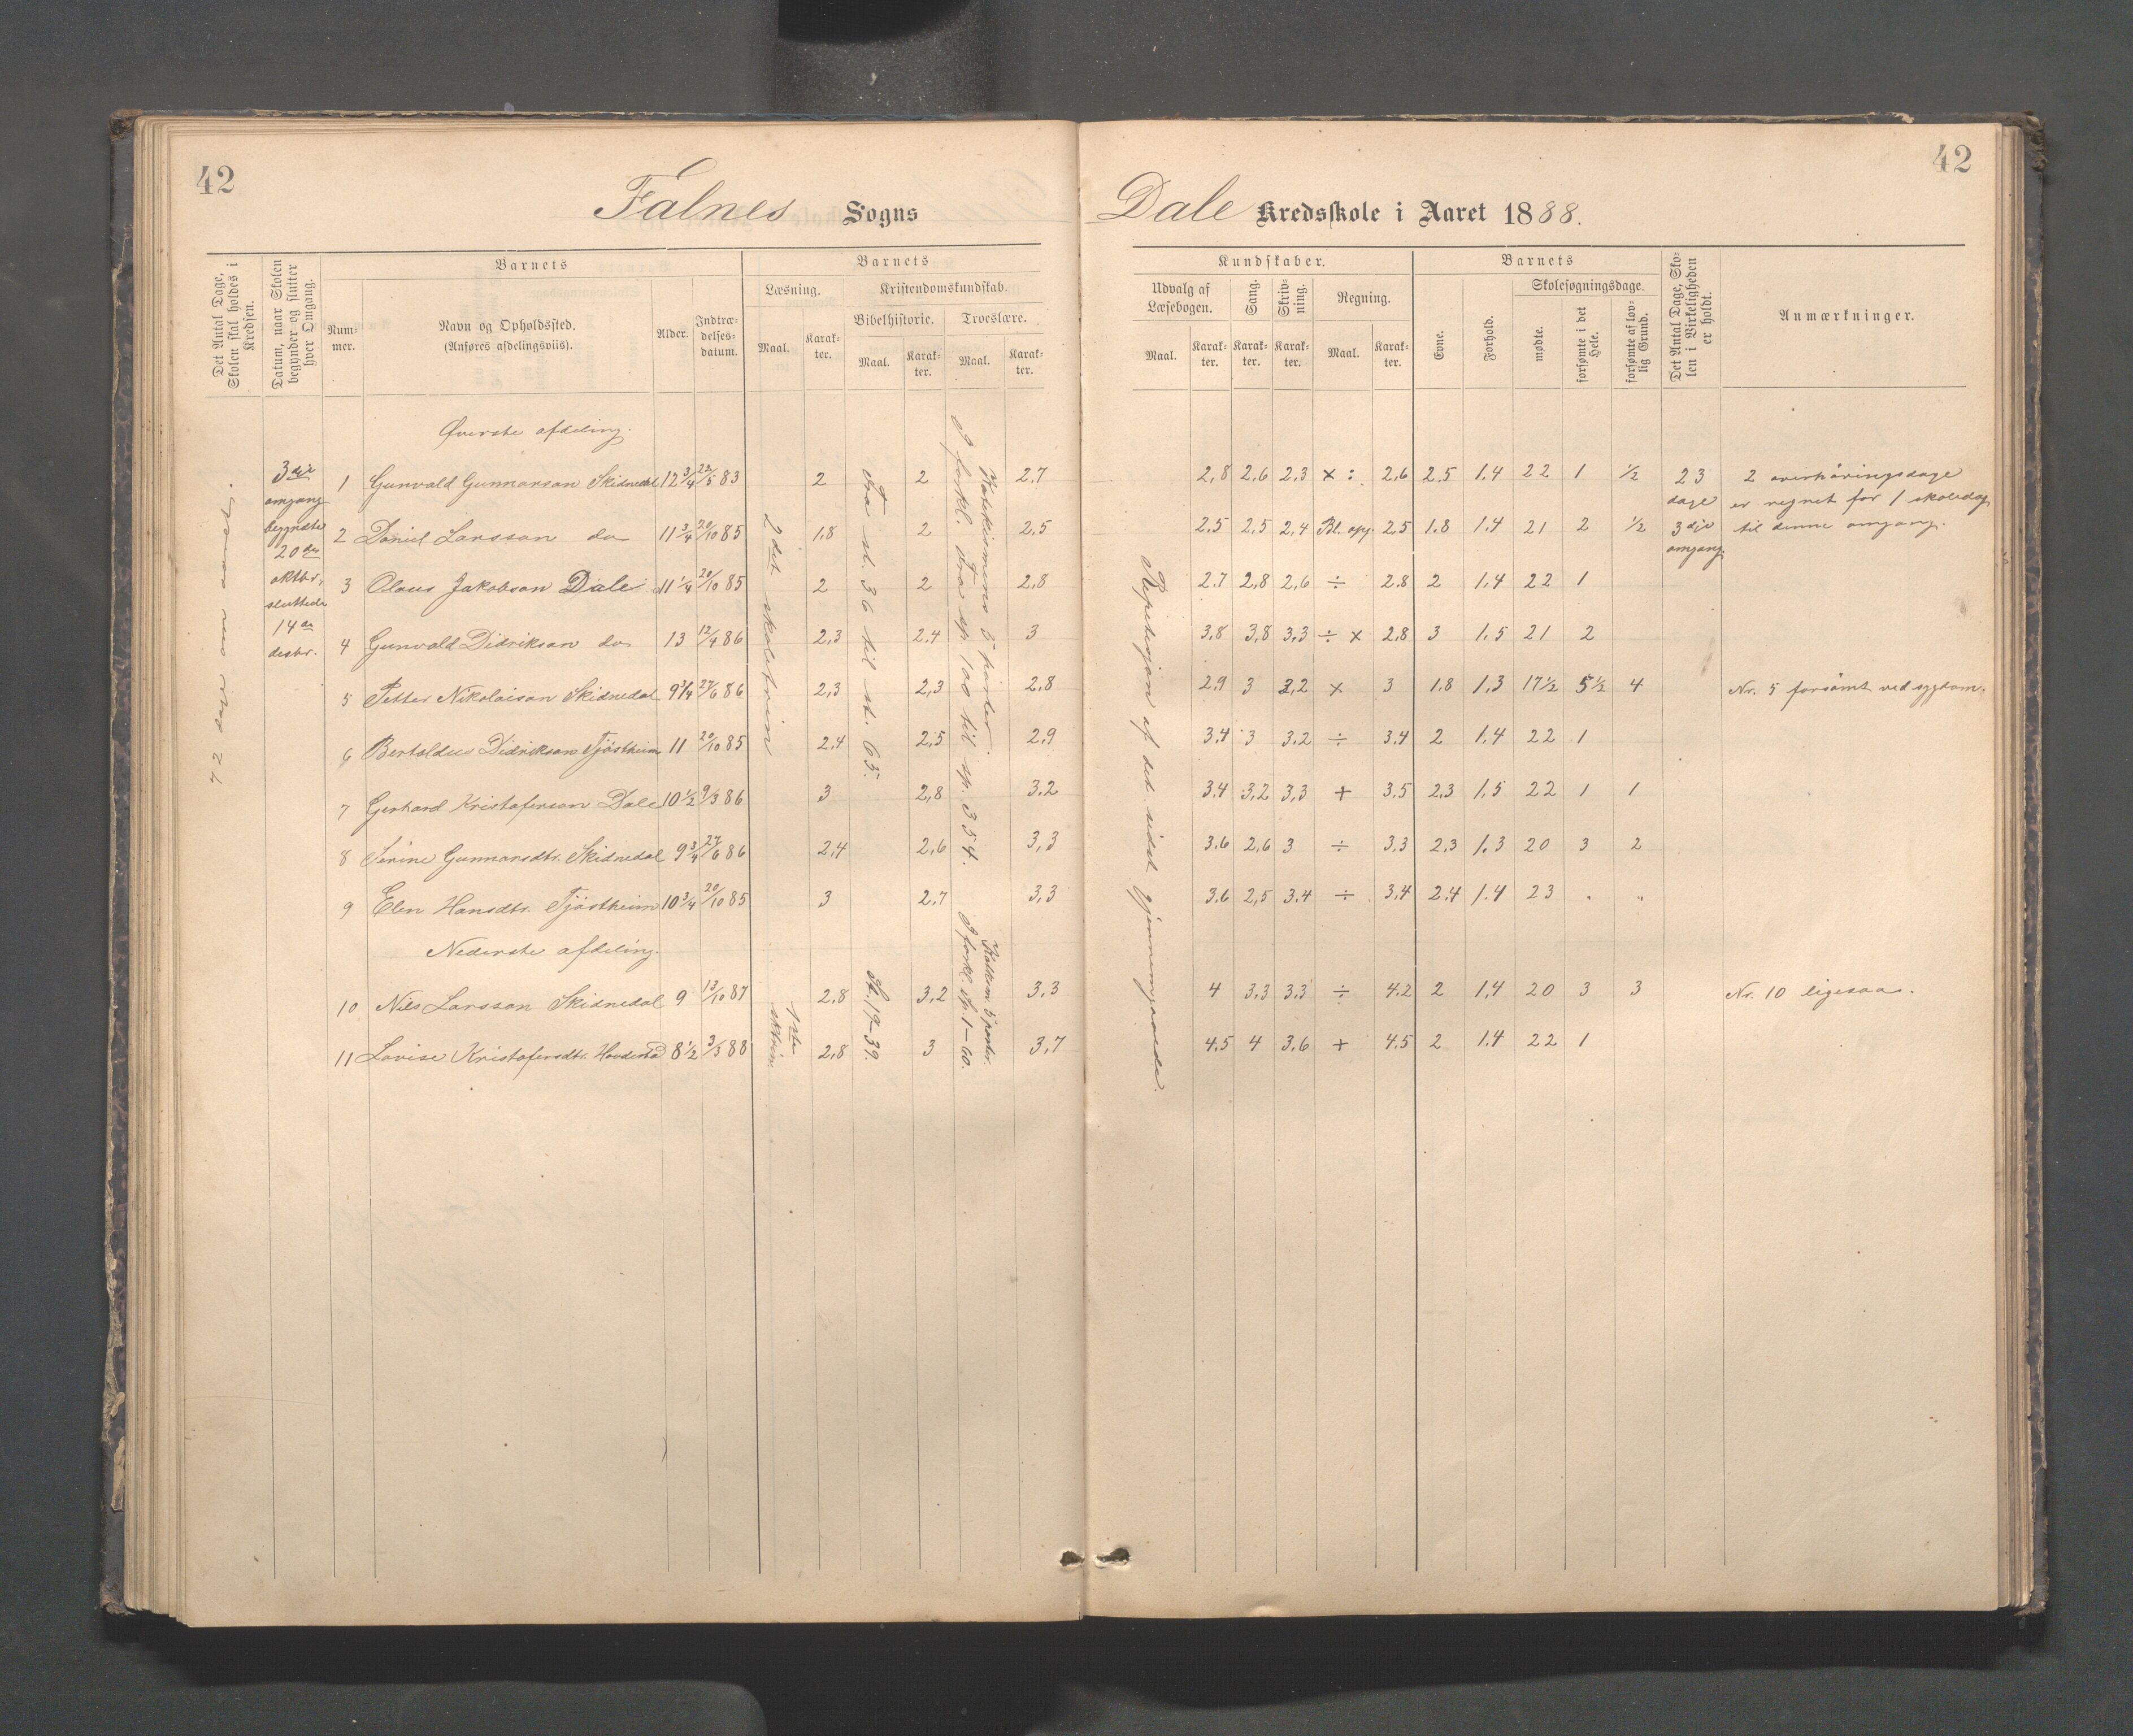 42
Falnes Sogns
Det Antal Dage, Skolen skal holdes i Kredsen.
Datum, naar Skolen begynder og slutter hver Omgang.
Barnets
Nummer.
Navn og Opholdssted.
(Anføres afdelingsviis).
Alder.
Indtrædelsesdatum.
Barnets
Læsning.
Kristendomskundskab.
Bibelhistorie.
Troeslære.
Maal. Karakter. Maal. Karakter. Maal. Karakter.
72 dage om aaret.
3die
omgang
begyndte
20de
oktbr,
sluttede
14de
desbr.
Øverste afdeling.
1 Gunvald Gunnarson Skidnedal 12 3/4 22/5 83 2 2 2,7
2 Daniel Larsson do 11 3/4 20/10 85 1,8 2 2,5
3 Olaus Jakobson Dale 11 1/4 20/10 85 2 2 2,8
4 Gunvald Didrikson do 13 12/4 86 2,3 2,4 3
5 Petter Nikolaison Skidnedal 9 3/4 27/6 86 2,3 2,3 2,8
6 Bertoldus Didrikson Tjøstheim 11 20/10 85 2,4 2,5 2,9
7 Gerhard Kristoferson Dale 10 1/2 9/3 86 3 2,8 3,2
8 Serine Gunnarsdtr. Skidnedal 9 3/4 27/6 86 2,4 2,6 3,3
9 Elen Hansdtr. Tjøstheim 10 3/4 20/10 85 3 2,7 3,3
Nederste afdeling.
10 Nils Larsson Skidnedal 9 13/10 87 2,8 3,2 3,3
11 Lovise Kristofersdtr. Hovdestad 8 1/2 3/3 88 2,8 3 3,7
2det skoletrin
Fra st. 36 til st. 63.
Katekismens 5 parter.
I forkl. fra sp. 100 til sp. 354.
1ste
sktrin.
St. 19–39.
Katkism. 5 parter.
I forkl. sp. 1–60.
42
Dale Kredsskole i Aaret 1888.
Kundskaber.
Udvalg af Læsebogen.
Sang.
Skrivning.
Regning.
Maal. Karakter. Karakter. Karakter. Maal. Karakter.
Barnets
Evne.
Forhold.
Skolesøgningsdage.
mødte.
forsømte i det Hele.
forsømte af lovlig Grund.
Det Antal Dage, Skolen i Virkeligheden er holdt.
Anmærkninger.
Repetisjon af det sidst gjennemgaaede.
2,8 2,6 2,3 × : 2,6 2.5 1.4 22 1 1/2
2.5 2,5 2,4 Bl. opg. 2,5 1.8 1.4 21 2 1/2
2.7 2,8 2,6 ÷ 2.8 2 1,4 22 1
3,8 3,8 3,3 ÷ × 2,8 3 1,5 21 2
2,9 3 3,2 × 3 1.8 1.3 17 1/2 5 1/2 4
3.4 3 3.2 ÷ 3.4 2 1.4 22 1
3.4 3,2 3,3 + 3,5 2,3 1,5 22 1 1
3.6 2,6 3 ÷ 3,3 2,3 1.3 20 3 2
3.6 2,5 3.4 ÷ 3,4 2.4 1.4 23 . "
4 3,3 3.3 ÷ 4.2 2 1,4 20 3 3
4.5 4 3,6 + 4.5 2 1.4 22 1
23
dage
3die
omgang.
2 overhøringsdage
er regnet for 1 skoledag
til denne omgang.
Nr. 5 forsømt ved sygdom.
Nr. 10 ligesaa.